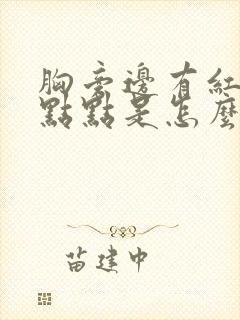 胸旁邊有紅
點點是怎麼
苗建中